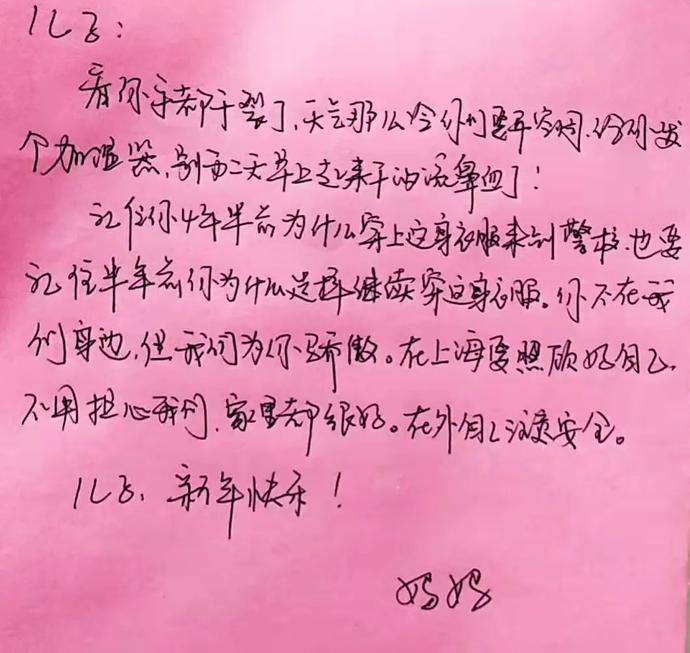 儿子:
看你手都干裂了,天气那么冷你们要开空调,给你发
个加湿器,别再二天早上起来干的流鼻血了!
记住你4年半前为什么穿上这身衣服来到警校,也要
记住半年前你为什么选择继续穿这身衣服。你不在我
们身边,但我们为你骄傲。在上海要照顾好自己,
不用担心我们,家里都很好。在外自己注意安全。
儿子,新年快乐!
妈妈